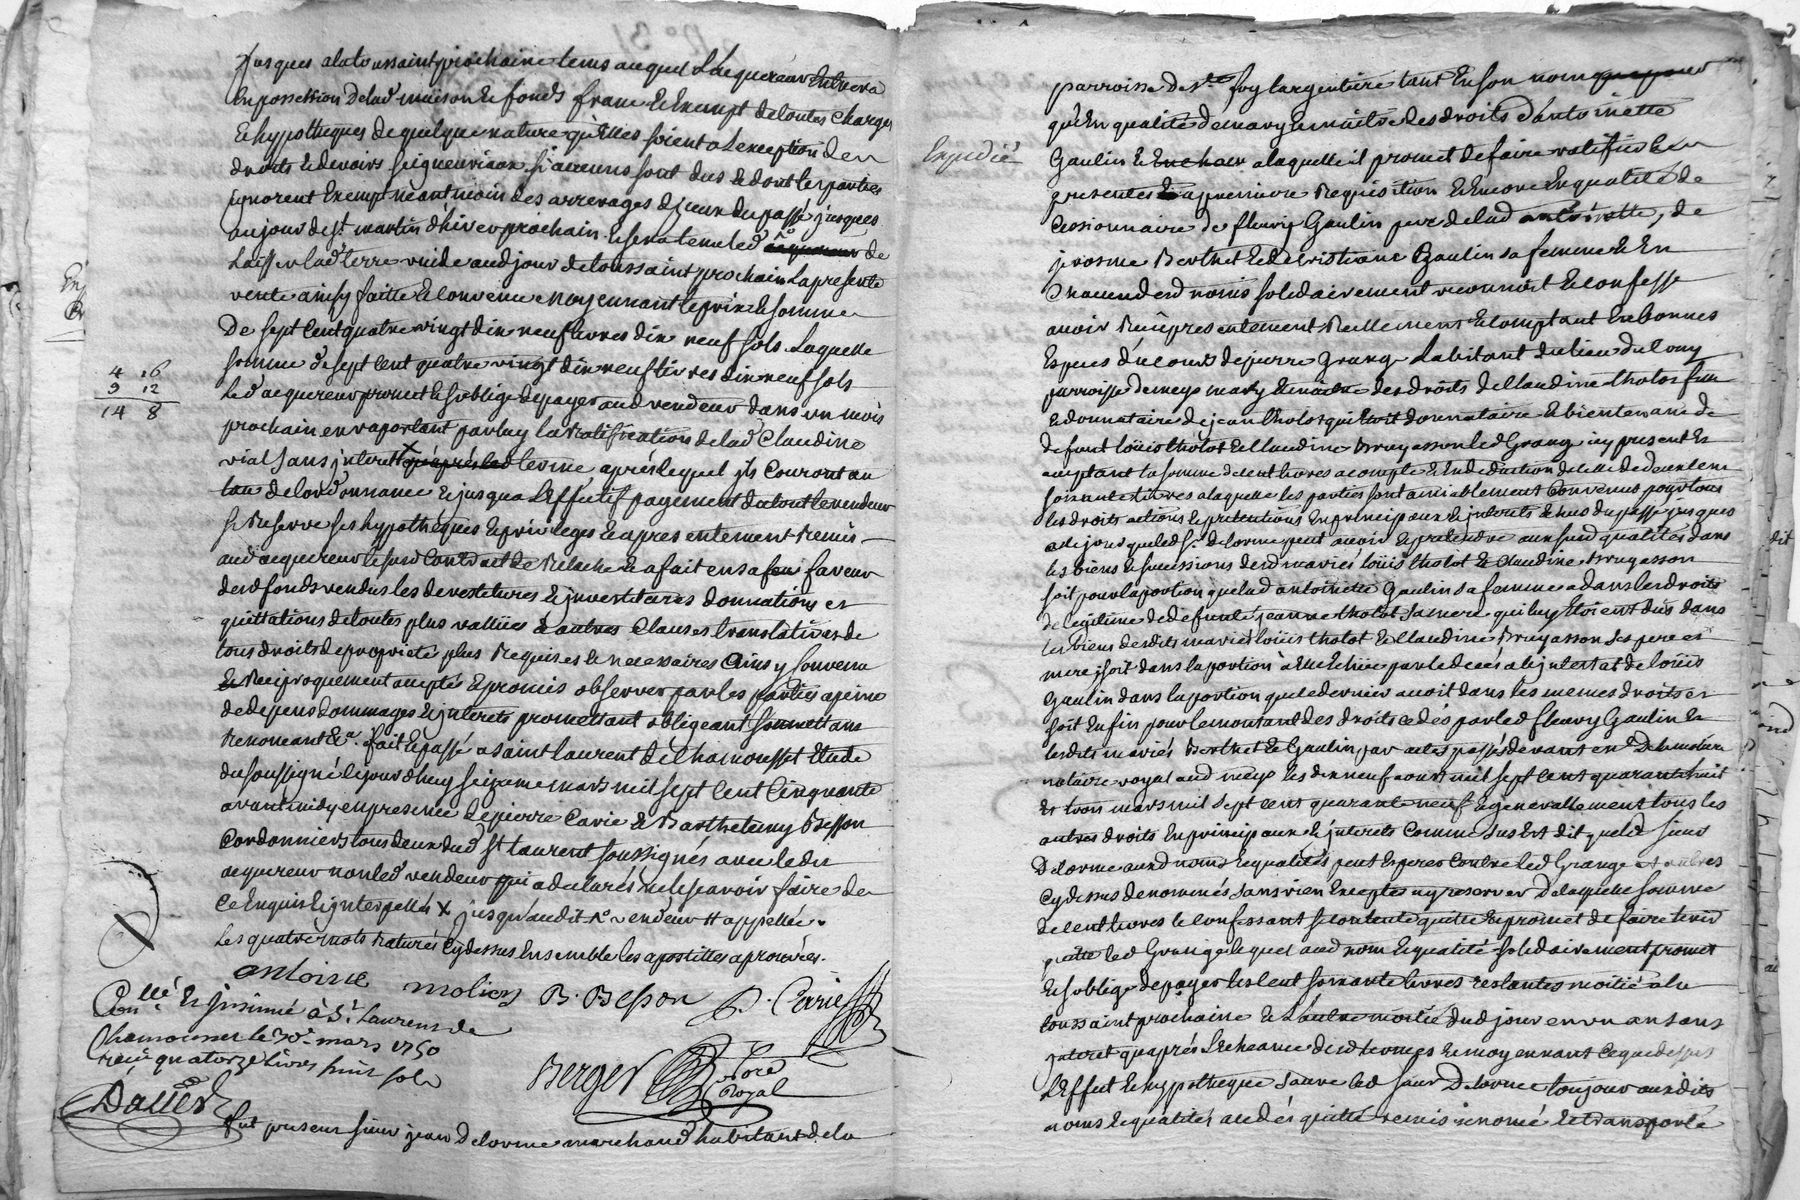 Jusques a la toussaint prochaine tems auquel L'acquereur Entrera
En possession De lad maison & fonds franc & Exempt de toutes charges
& hypotheques de quelque nature qu'Elles soient a L'exception den
droits & devoirs seigneuriaux si aucuns sont dus & dont les parties
ignorent Exempt neantmoin des arrerages d'jceux du passé jusques
au jour de St. martin d'hiver prochain. & sera tenu led de
Laisser lad terre vuide aud jour de toussaint prochain La presente
vente ainsy faitte & convenue moyennant le prix & somme
De sept Cent quatre vingt dix neuf livres dix neuf sols Laquelle
somme de sept Cent quatre vingt dix neuf livres dix neuf sols
4 16
9 12
14 8
Led acquereur promet & s'oblige de payer aud vendeur dans un mois
prochain en raportant par luy la Ratification de lad Claudine
vial sans jnterest qu'aprés led terme aprés lequel jls Couront au
taux de l'ordonnance & jusqua L'Effectif payement du tout le vendeur
se Reserve ses hypotheques & privileges & a presentement Remis
aud acquereur le susd Contrat de Relache & a fait en sa faveur
desd fonds vendus les devestitures & jnvestitures donnations et
quittations de toutes plus vallües & autres Clauses translatives de
tous droits de proprieté plus Requises & necessaires Ainsy Convenu
& Reciproquement accepté & promis observer par les parties a peine
de depens dommages & jnterets promettant obligeant soumettans
Renonçant &a. fait & passé a saint laurent de Chamousset Etude
du soussigné le jour d'huy seizieme mars mil sept Cent Cinquante
avant midy en presence de pierre Carie & Barthelemy Besson
Cordonniers tous deux dud St laurent soussignés avec ledit
acquereur non led vendeur qui a declarés ne le sçavoir faire de
Ce Enquis & jnterpellés X jusqu'audit vendeur # appellée.
Les quatre mots raturés Cydessus Ensemble les apostilles aprouvés.
antoine moliers B. Besson P. Carie
Conllé & jnsinué à St. Laurens de
Chamousset le 30e mars 1750
reçu quatorze Livres huit sols
Berger Nore Royal
Dalier
fut present sieur jean Delorme marchand habitant de la
parroisse de Ste foy l'argentiere tant En son nom
qu'En qualité de mary & maitre des droits d'antoinette
Expedié
Gaulin a laquelle il promet de faire ratiffier les
presentes a premiere Requisition & Encore En qualité de
Cessionnaire de fleury Gaulin pere de lad antoinette, de
jerosme Berthet & de Cristianne Gaulin sa femme & En
Chacun desd noms solidairement reconnoit & confesse
avoir Reçu presentement Reellement & Comptant En bonnes
Especes d'u cours de pierre Grange habitant du lieu du Cony
parroisse de meys mary & maitre des droits de Claudine tholot fille
& donnataire de jean tholot qui Etoit donnataire & bientenant de
defunt loüis tholot & Claudine Bruyasson led Grange icy present Et
acceptant la somme de Cent livres a compte & En deduction de celle de deux Cent
soixante livres a laquelle les parties sont amiablement Convenus pour tous
les droits actions & pretentions En principaux & jnterets Echus du passé jusques
a ce jour que led Sr. delorme peut avoir & pretendre aux susd qualités dans
les biens & successions desd mariés loüis tholot & Claudine Bruyasson
soit pour la portion que lad antoinette Gaulin sa femme a dans les droits
de legitime de defunte jeanne tholot sa mere qui luy Etoient dus dans
les Biens desdits mariés loüis tholot & Claudine Bruyasson ses pere et
mere soit dans la portion à Elle Echüe par le decés ab jntestat de loüis
Gaulin dans la portion que ce dernier avoit dans les memes droits et
soit Enfin pour le montant des droits cedés par led fleury Gaulin Et
lesdits mariés Berthet & Gaulin, par actes passés devant
notaire royal aud meys les dix neuf aoust mil sept Cent quarante huit
Et trois mars mil sept Cent quarante neuf & generallement tous les
autres droits En principaux & jnterets Comme sus Est dit que led sieur
Delorme auxd noms & qualités peut Esperer Contre led Grange et autres
Cydessus denommés sans rien Excepter ny reserver De laquelle somme
de Cent livres le Confessant se contente quitte & promet de faire tenir
quitte led Grange lequel aud nom & qualité solidairement promet
& s'oblige de payer les Cent soixante livres restantes moitié a la
toussaint prochaine & L'autre moitié dud jour en un an sans
jnteret qu'aprés L'Echeance desd termes & moyennant Ce que dessus
L'Effet & hypotheque sauve led sieur Delorme toujours auxdits
noms & qualités a cedés quitté remis renoncé & transporté